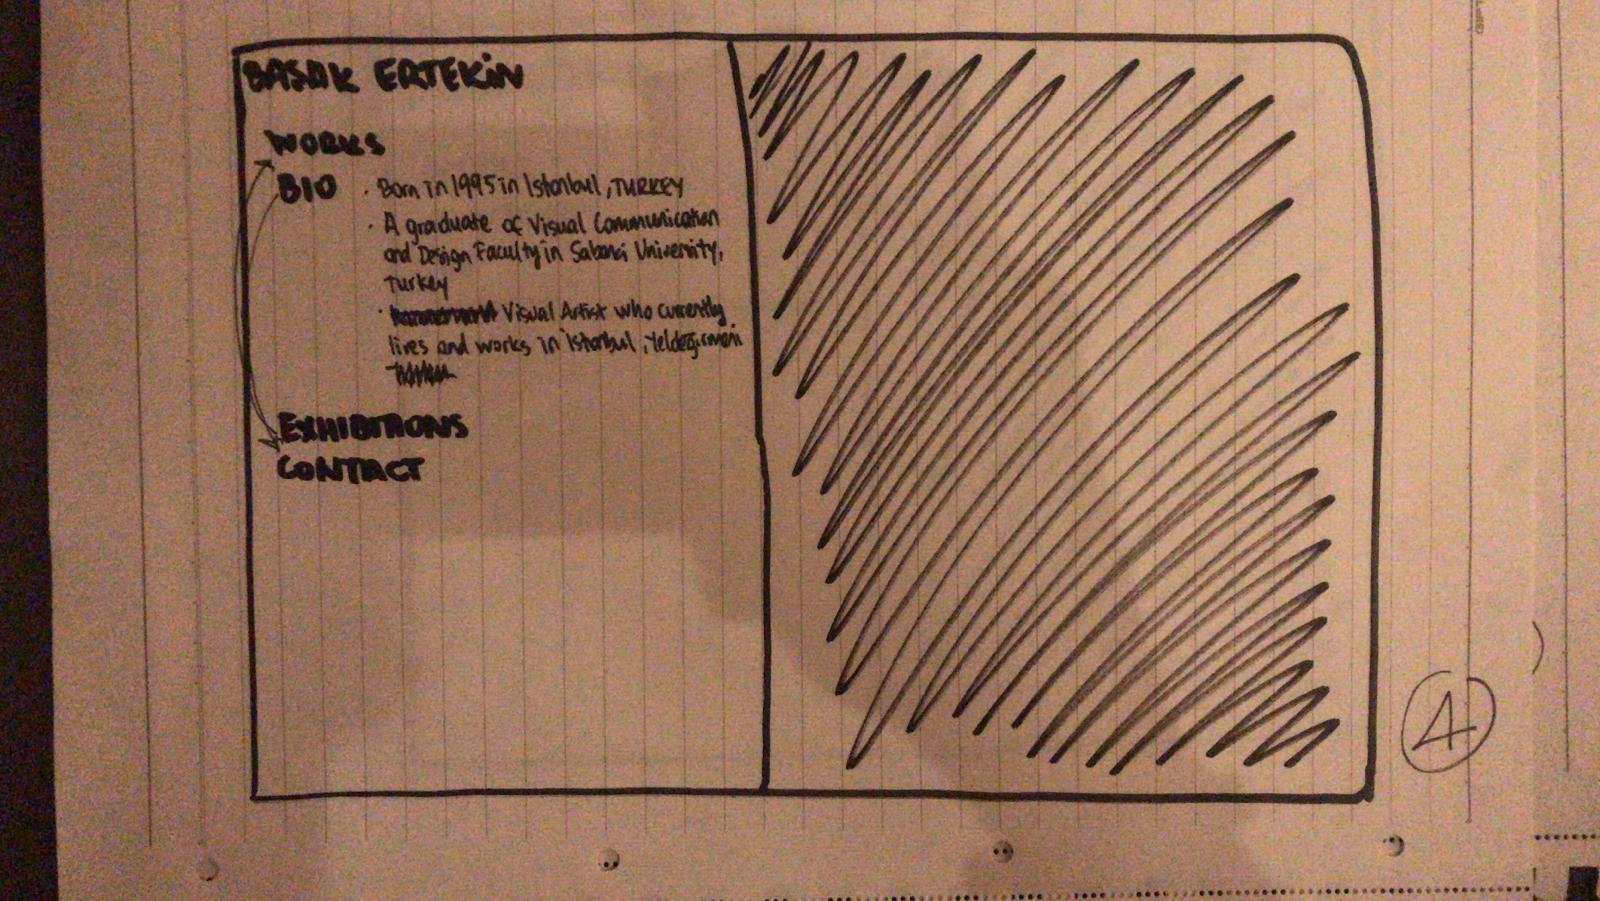 BASAK ERTEKiN
WORKS
BIO · Born in 1995 in Istanbul, TURKEY
· A graduate of Visual Communication
and Design Faculty in Sabancı University,
Turkey
· Visual Artist who currently
lives and works in istanbul, Yeldegirmeni
EXHIBITIONS
CONTACT
4